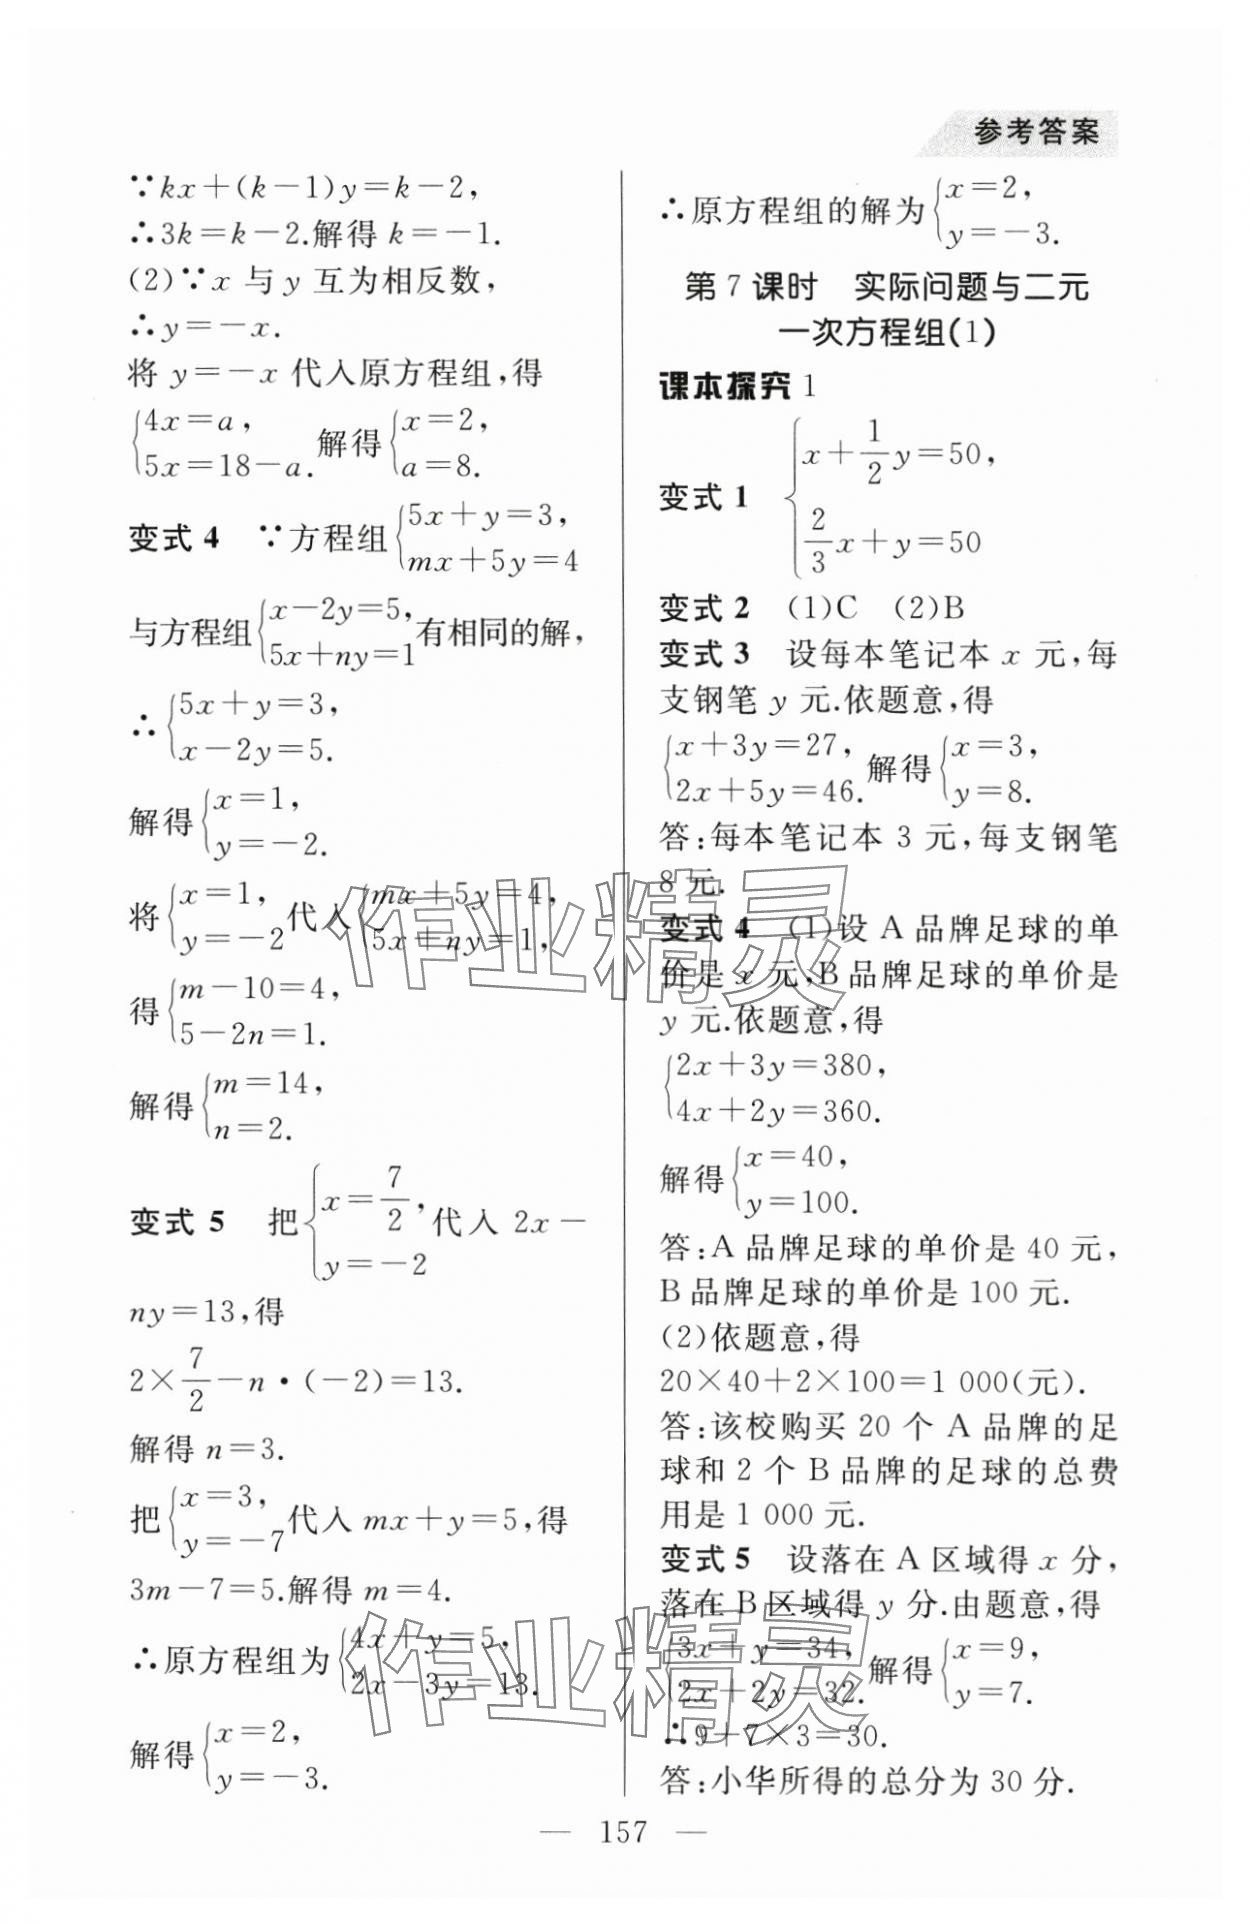 参考答案
∵kx+(k-1)y=k-2,
∴3k=k-2.解得 k=-1.
(2)∵x 与 y 互为相反数,
∴y=-x.
将 y=-x 代入原方程组,得
{4x=a, 5x=18-a. 解得 {x=2, a=8.
变式 4 ∵方程组 {5x+y=3, mx+5y=4
与方程组 {x-2y=5, 5x+ny=1 有相同的解,
∴ {5x+y=3, x-2y=5.
解得 {x=1, y=-2.
将 {x=1, y=-2 代入 {mx+5y=4, 5x+ny=1,
得 {m-10=4, 5-2n=1.
解得 {m=14, n=2.
变式 5 把 {x=7/2, y=-2 代入 2x-
ny=13,得
2×7/2-n·(-2)=13.
解得 n=3.
把 {x=3, y=-7 代入 mx+y=5,得
3m-7=5.解得 m=4.
∴原方程组为 {4x+y=5, 2x-3y=13.
解得 {x=2, y=-3.
∴原方程组的解为 {x=2, y=-3.
第 7 课时 实际问题与二元
一次方程组(1)
课本探究 1
变式 1 {x+1/2y=50, 2/3x+y=50
变式 2 (1)C (2)B
变式 3 设每本笔记本 x 元,每
支钢笔 y 元.依题意,得
{x+3y=27, 2x+5y=46. 解得 {x=3, y=8.
答:每本笔记本 3 元,每支钢笔
8 元.
变式 4 (1)设 A 品牌足球的单
价是 x 元,B 品牌足球的单价是
y 元.依题意,得
{2x+3y=380, 4x+2y=360.
解得 {x=40, y=100.
答:A 品牌足球的单价是 40 元,
B 品牌足球的单价是 100 元.
(2)依题意,得
20×40+2×100=1 000(元).
答:该校购买 20 个 A 品牌的足
球和 2 个 B 品牌的足球的总费
用是 1 000 元.
变式 5 设落在 A 区域得 x 分,
落在 B 区域得 y 分.由题意,得
{3x+y=34, 2x+2y=32. 解得 {x=9, y=7.
∴9+7×3=30.
答:小华所得的总分为 30 分.
— 157 —
作业精灵
作业精灵